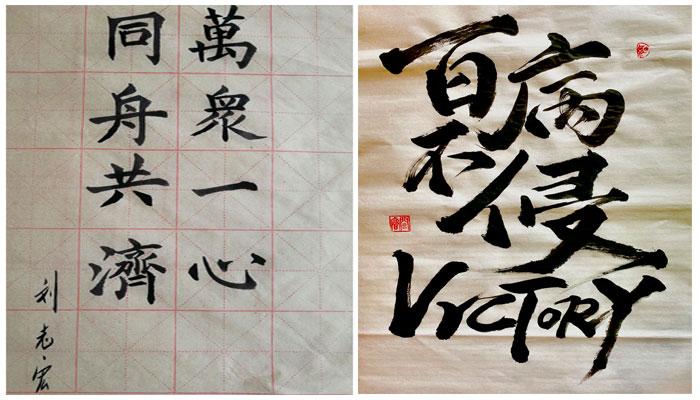 萬眾一心
同舟共濟
刘
百病
不侵
VICTORY